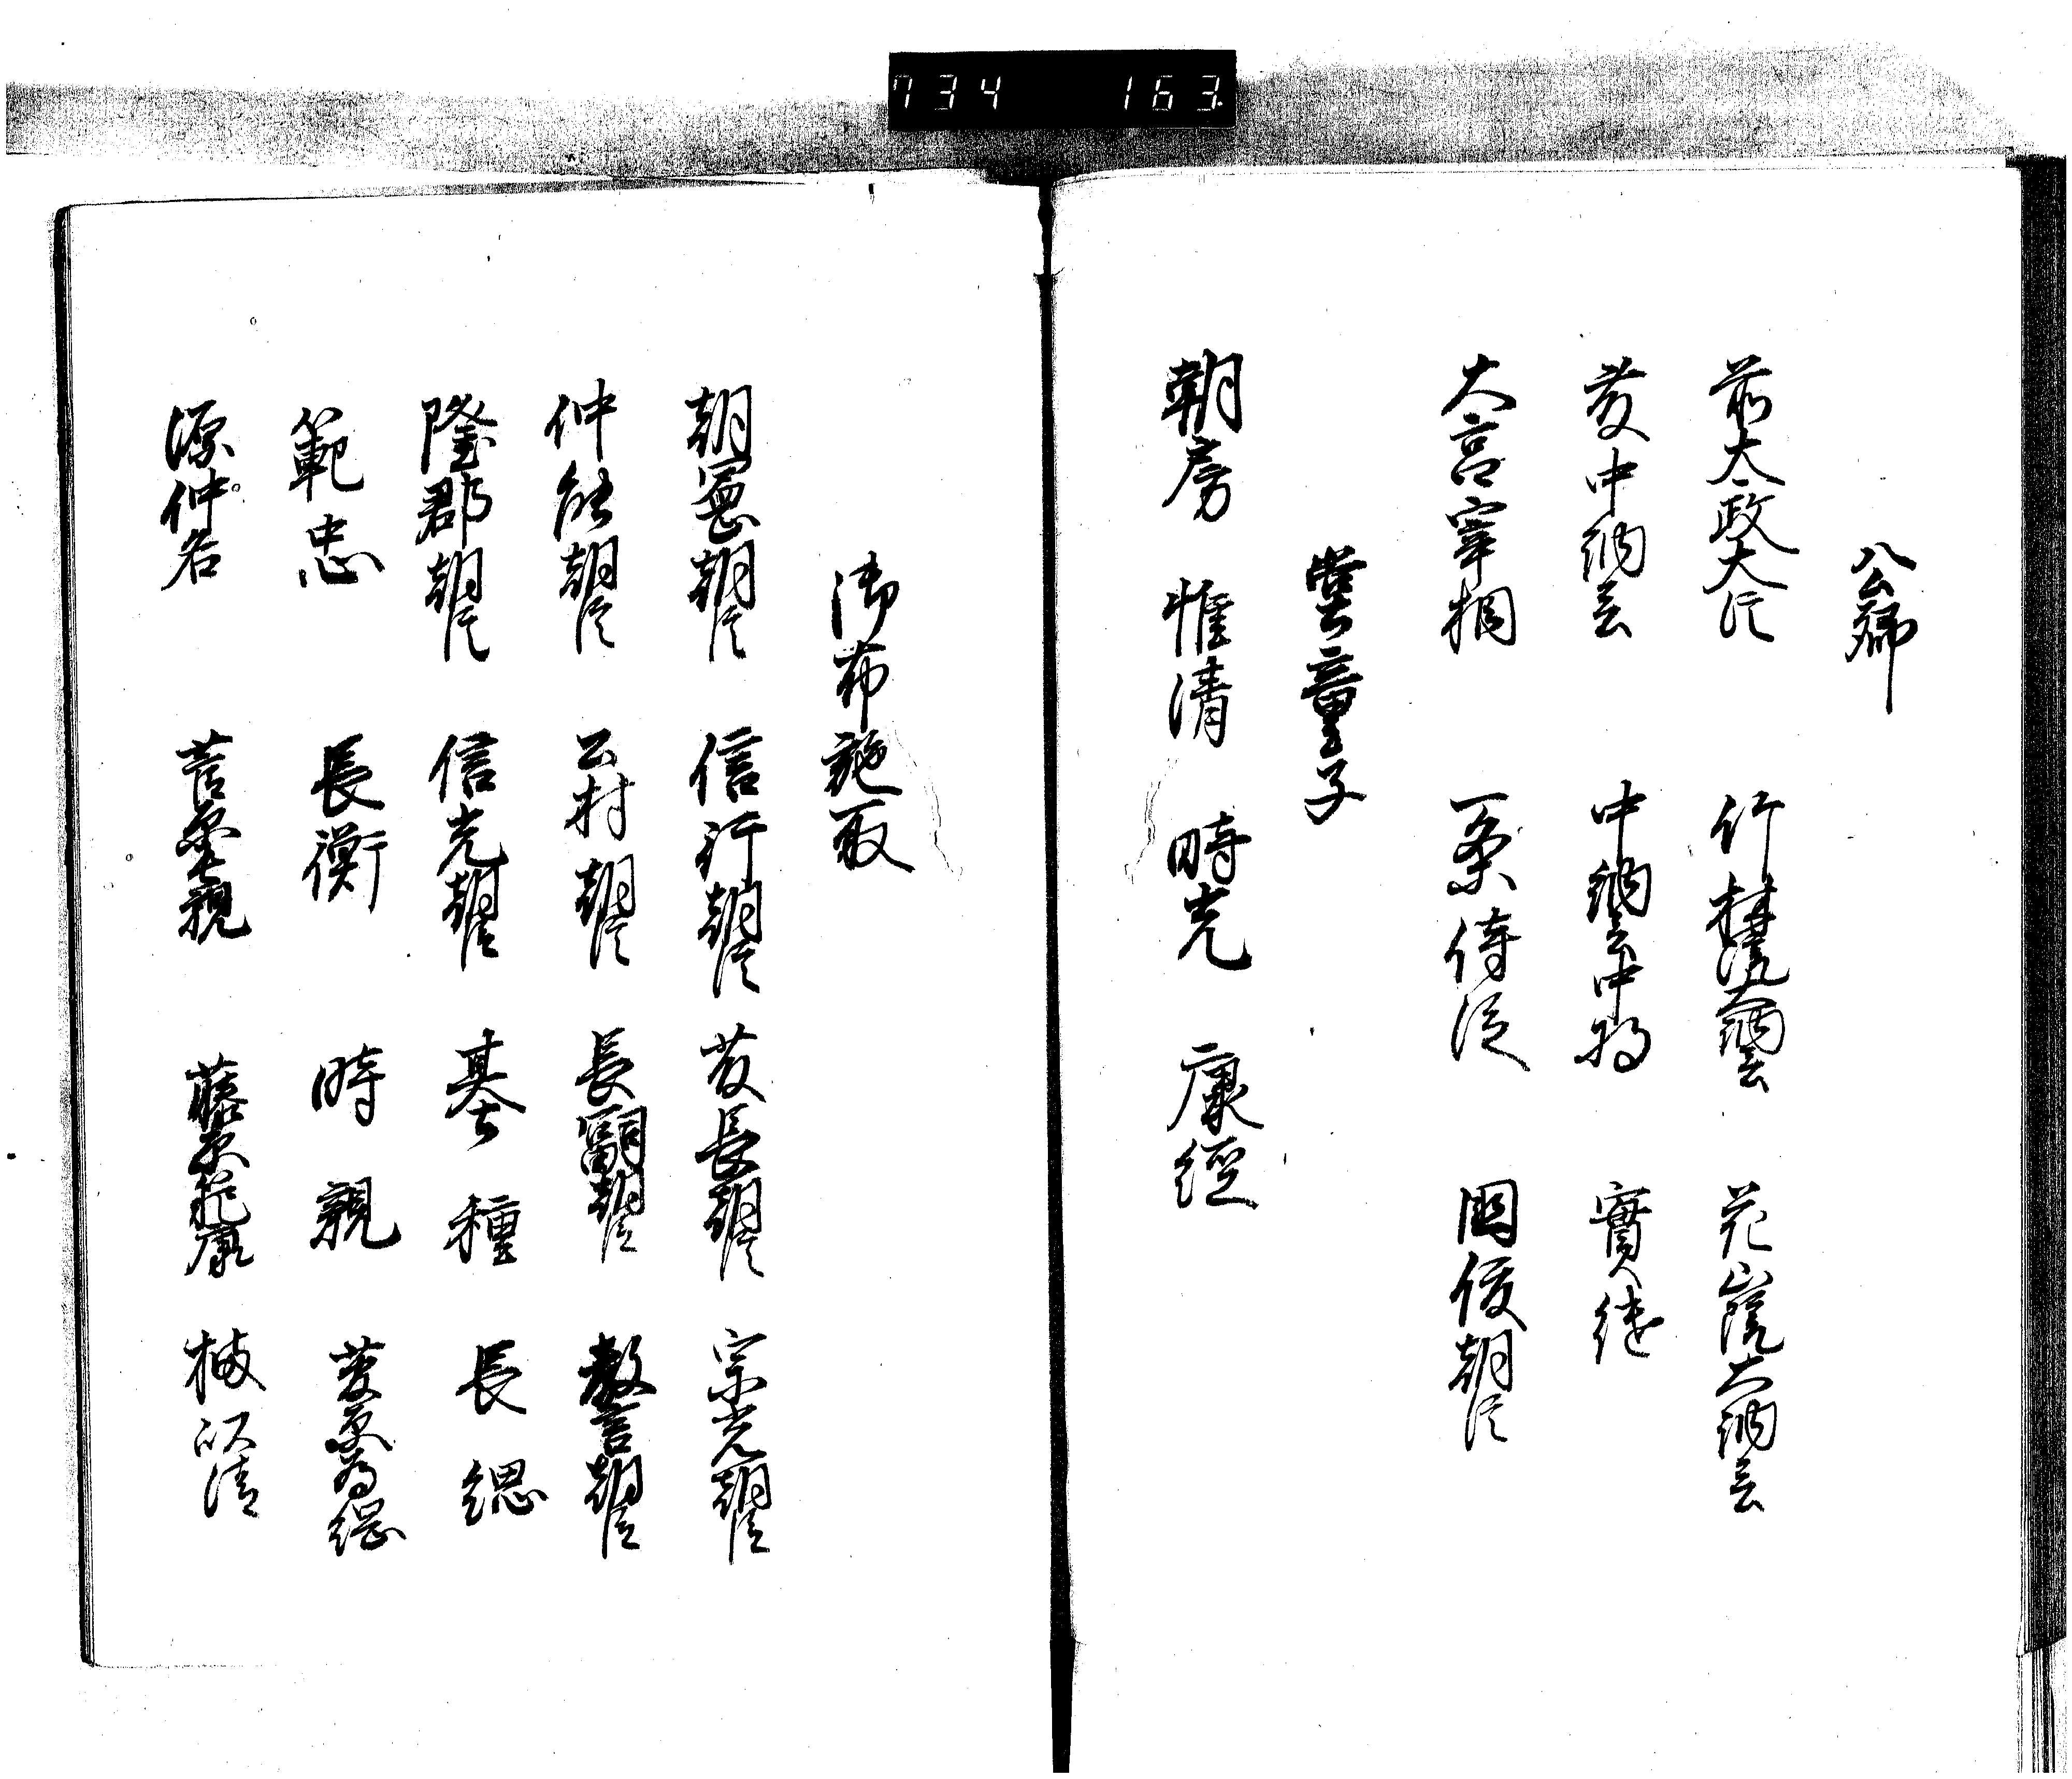 734 163
公卿
前太政大臣 竹林院大納言 花山院大納言
藤中納言 中納言中将 實継
大宮宰相 一条侍従 国俊朝臣
堂童子
朝房 惟清 時光 康経
御布施取
朝冬朝臣 信行朝臣 藤長朝臣 宗光朝臣
仲能朝臣 公村朝臣 長嗣朝臣 教言朝臣
隆郡朝臣 信光朝臣 基種 長綱
範忠 長衡 時親 藤原為綱
源仲名 菅原 親 藤原範康 橘以清